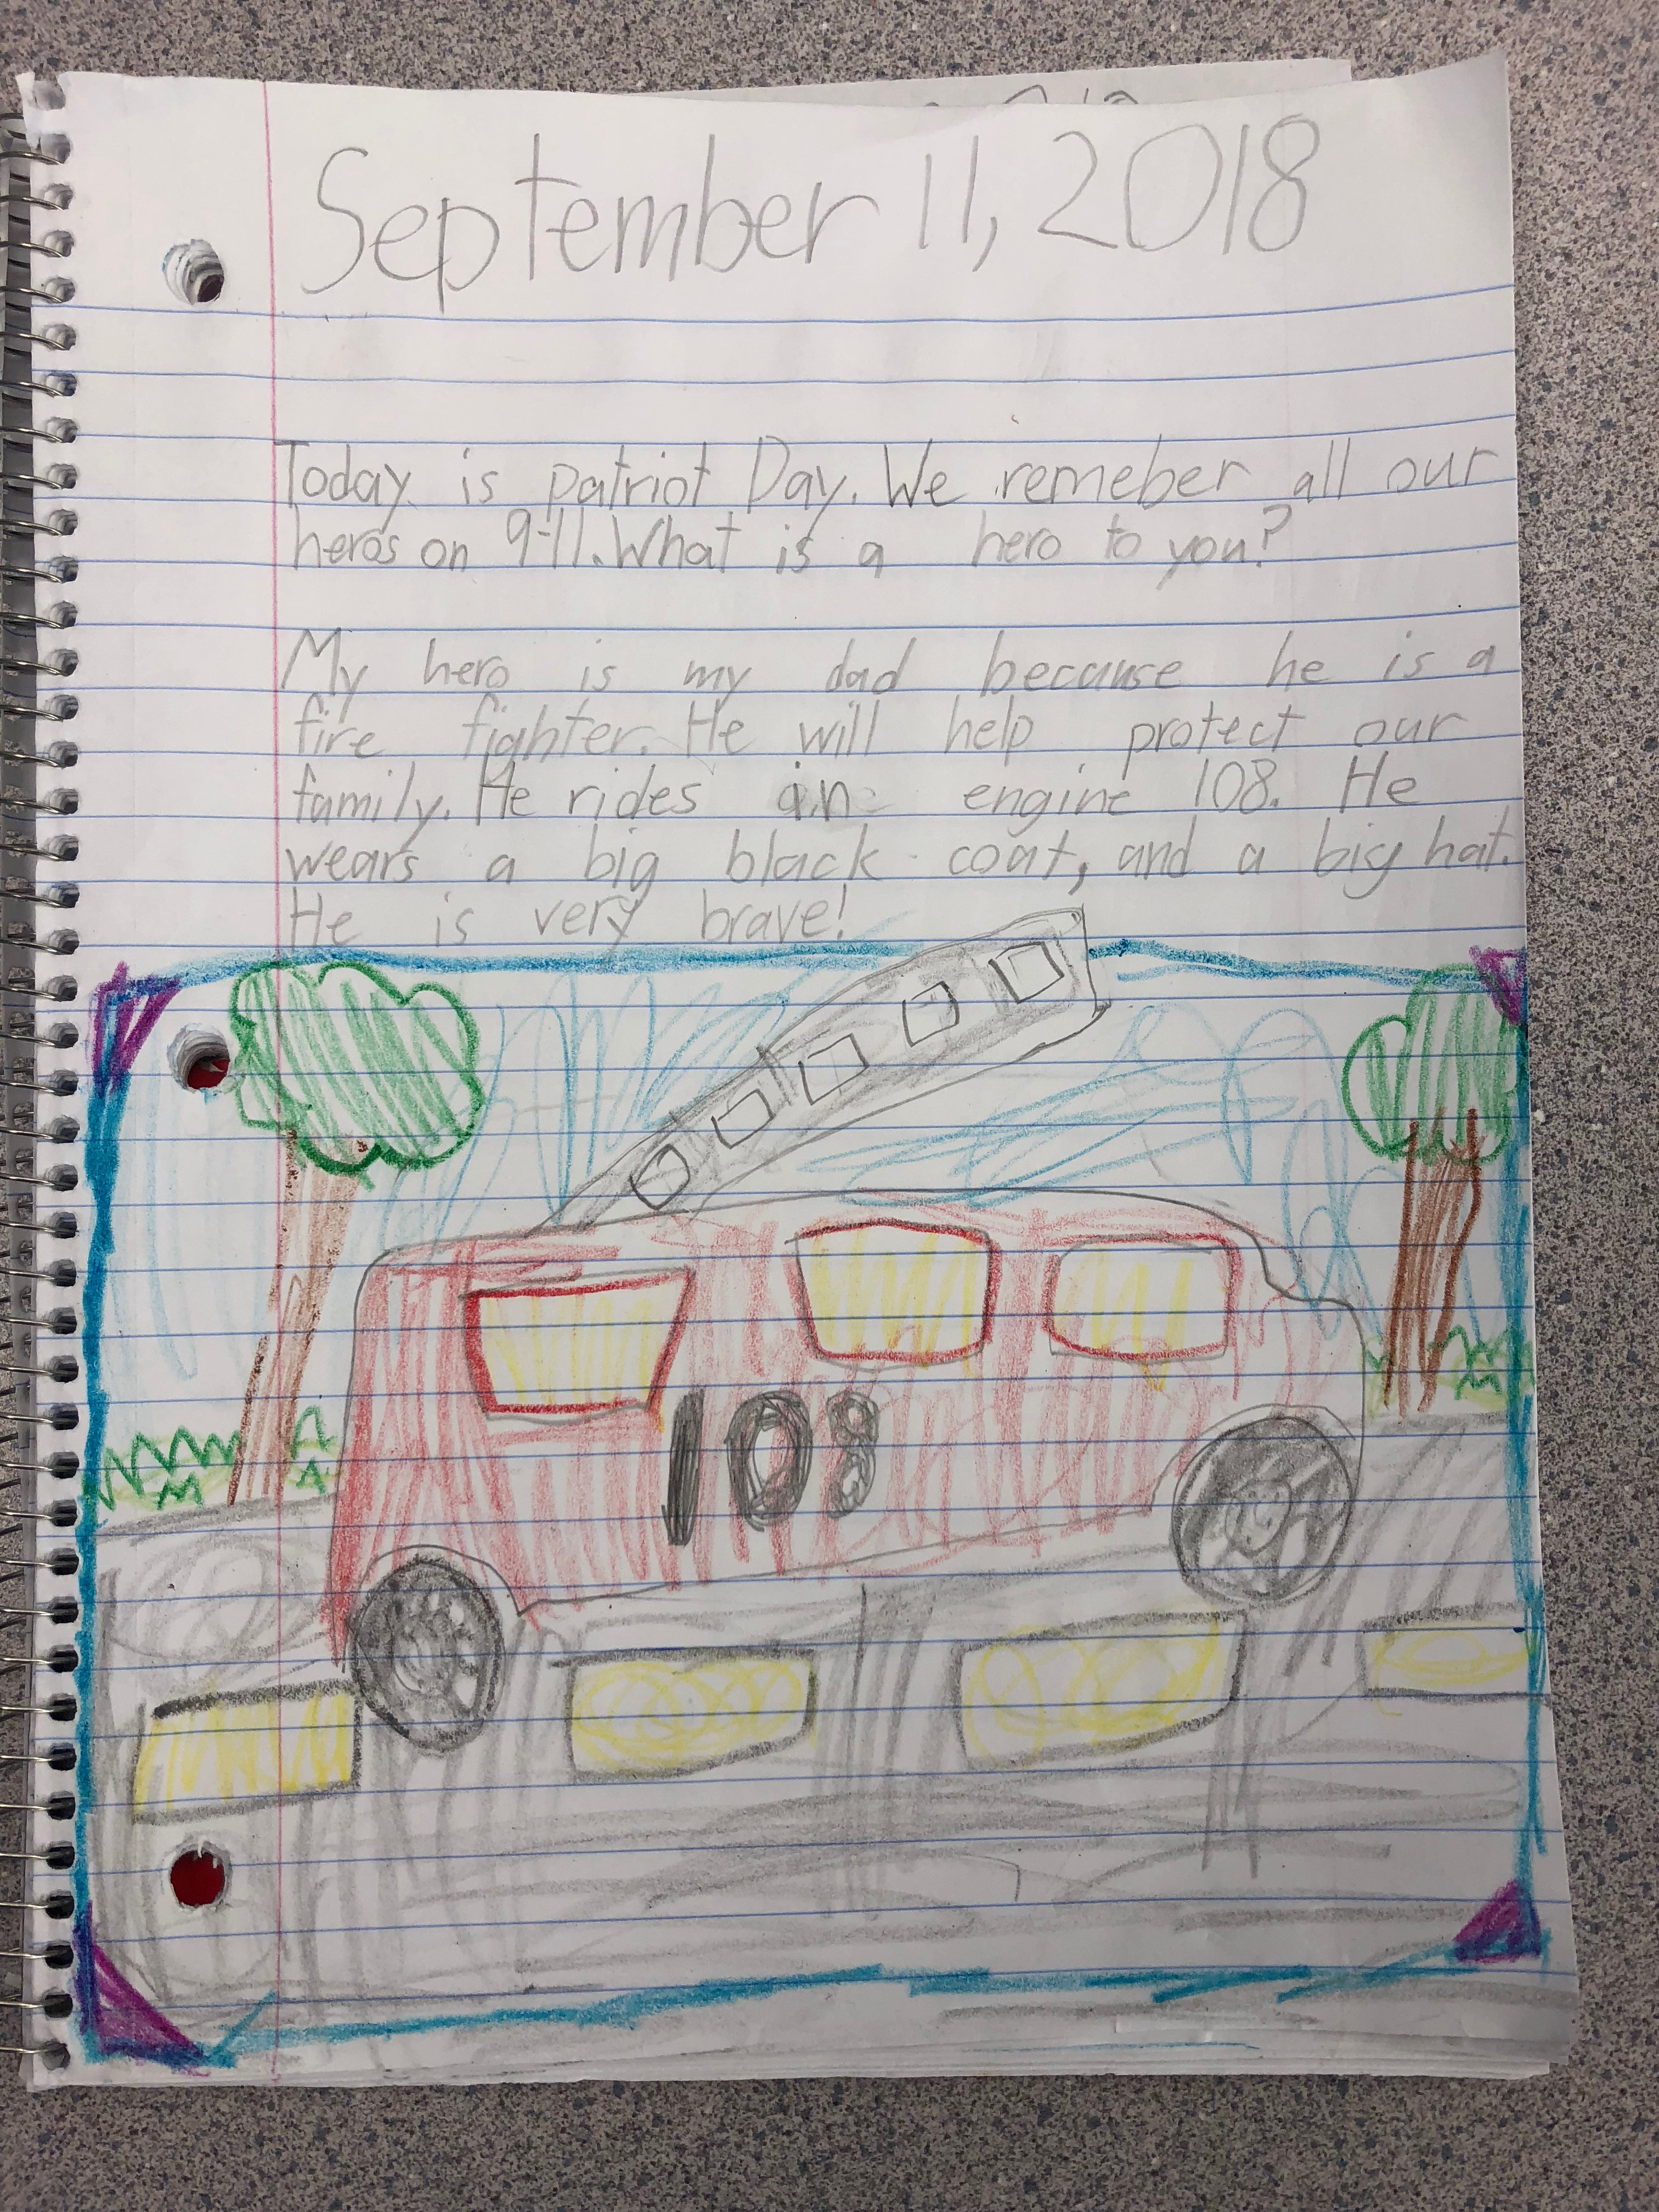 September 11, 2018
Today is patriot Day. We remeber all our
heros on 9-11. What is a hero to you?
My hero is my dad because he is a
fire fighter. He will help protect our
family. He rides in engine 108. He
wears a big black coat, and a big hat.
He is very brave!
108